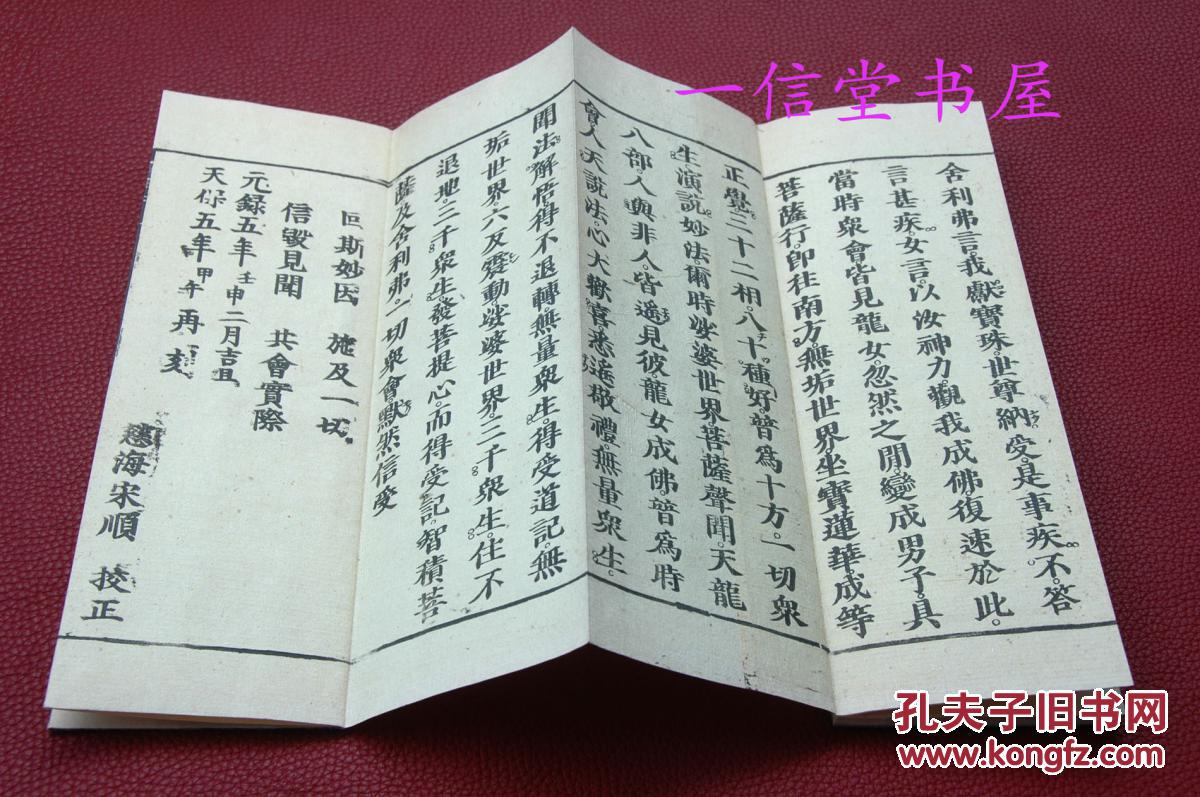 一信堂书屋
舍利弗言我獻寶珠世尊納受是事疾不答
言甚疾女言以汝神力觀我成佛復速於此
當時衆會皆見龍女忽然之閒變成男子具
菩薩行卽往南方無垢世界坐寶蓮華成等
正覺三十二相八十種好普爲十方一切衆
生演說妙法爾時娑婆世界菩薩聲聞天龍
八部人與非人皆遙見彼龍女成佛普爲時
會人天說法心大歡喜悉遙敬禮無量衆生
聞法解悟得不退轉無量衆生得受道記無
垢世界六反震動娑婆世界三千衆生住不
退地三千衆生發菩提心而得受記智積菩
薩及舍利弗一切衆會默然信受
叵斯妙因 施及一切
信毀見聞 共會實際
元録五年壬申二月吉旦
天保五年甲午再刻
海宋順 挍正
孔夫子旧书网
www.kongfz.com